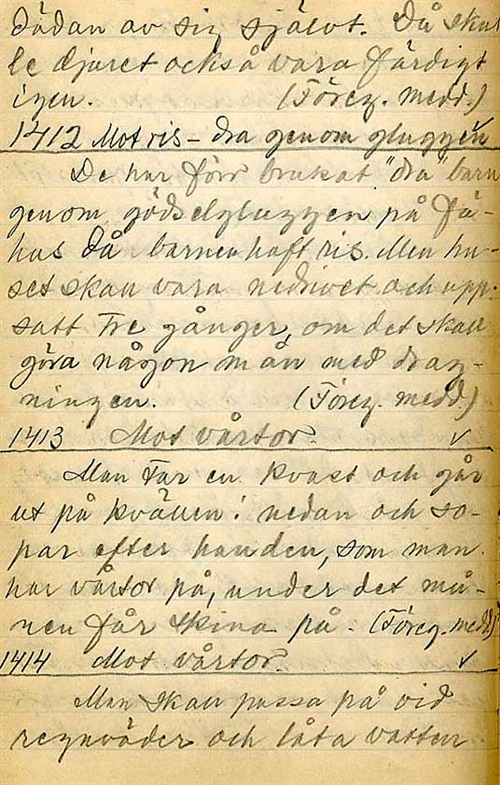 dödan av sig självt. Då skul
le djuret också vara färdigt
igen. (Föreg. medd.)
1412 Mot ris - dra genom gluggen
De har förr brukat "dra" barn
genom gödselgluggen på fä-
hus då barnen haft ris. Men hu-
set skall vara nedrivet och upp-
satt tre gånger, om det skall
göra någon mån med drag-
ningen. (Föreg. medd.)
1413 Mot vårtor. ✓
Man tar en kvast och går
ut på kvällen i nedan och so-
par efter handen, som man
har vårtor på, under det må-
nen får skina på. (Föreg. medd.)
1414 Mot vårtor. ✓
Man skall passa på vid
regnväder och låta vatten